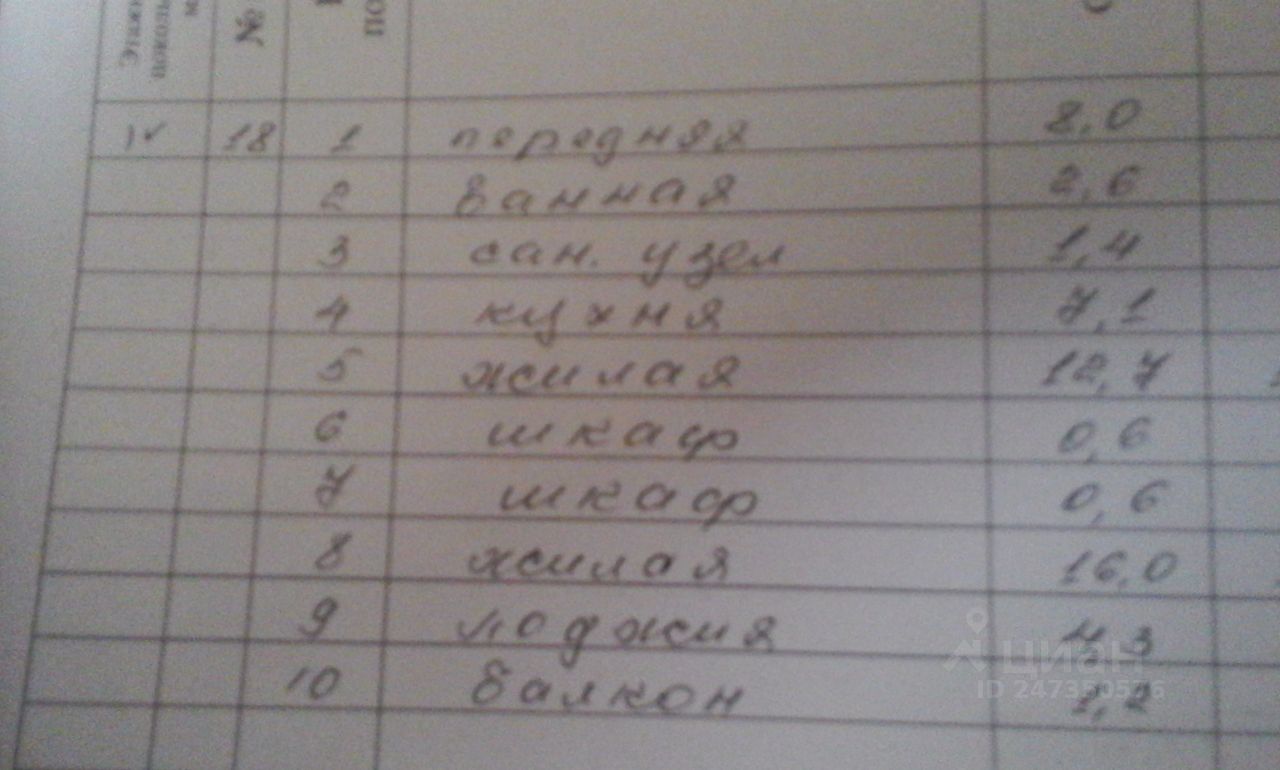 №
IV 18 1 передняя 8,0
2 ванная 2,6
3 сан. узел 1,4
4 кухня 7,1
5 жилая 12,7
6 шкаф 0,6
7 шкаф 0,6
8 жилая 16,0
9 лоджия 4,3
10 балкон 1,2
циан
ID 247350576